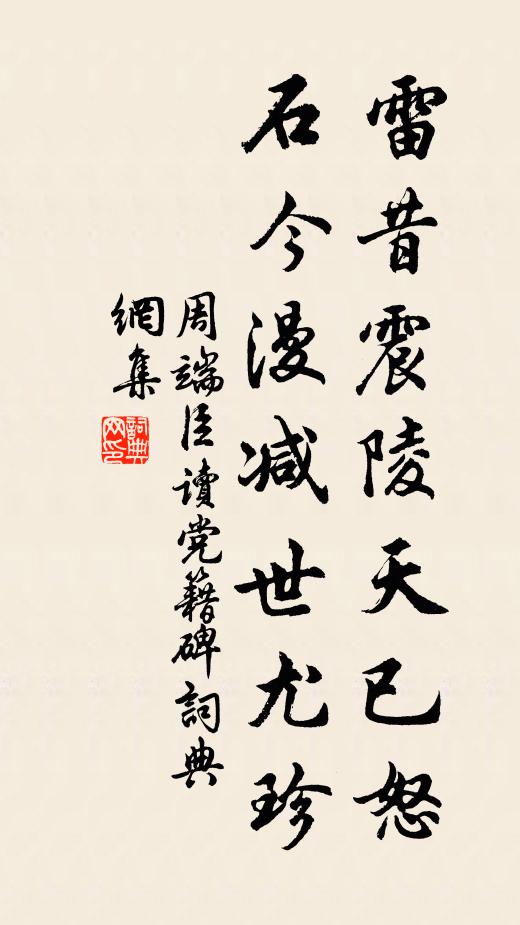 雷昔震陵天已怒
石今漫减世尤珍
周端臣读党籍碑詞典
網集
詞典
网印